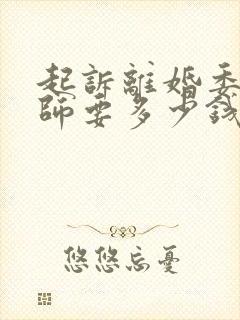 起訴離婚委
師要多少錢
悠悠忘憂